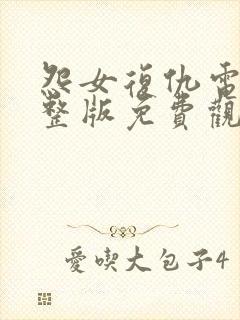 怨女復仇電
整版免費觀
愛喫大包子4